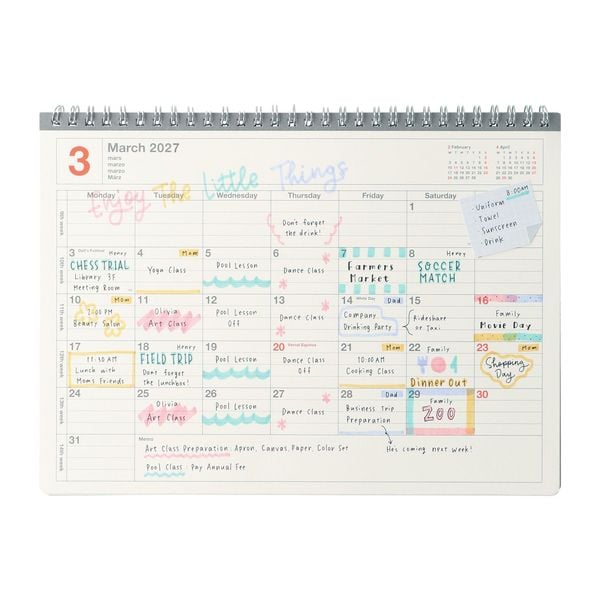 3
March 2027
mars
marzo
marzo
März
2 February
4 April
Enjoy The Little Things
Monday Tuesday Wednesday Thursday Friday Saturday
9th week
1
Don't forget
the drink!
8:00AM
• Uniform
• Towel
• Sunscreen
• Drink
10th week
3 Doll's Festival Henry
CHESS TRIAL
Library 3F
Meeting Room
4 Mom
Yoga Class
5
Pool Lesson
6
Dance Class
7
Farmers
Market
8 Henry
SOCCER
MATCH
11th week
10 Mom
2:00 PM
Beauty Salon
11
Olivia
Art Class
12
Pool Lesson
Off
13
Dance Class
14 White Day Dad
Company
Drinking Party
15
Rideshare
or Taxi
16
Family
Movie Day
12th week
17
11:30 AM
Lunch with
Moms Friends
18 Henry
FIELD TRIP
Don't forget
the lunchbox!
19
Pool Lesson
20 Vernal Equinox
Dance Class
Off
21 Mom
10:00AM
Cooking Class
22 Family
Dinner Out
23 Mom
Shopping
Day
13th week
24
25
Olivia
Art Class
26
Pool Lesson
27
Dance Class
28 Dad
Business Trip
Preparation
29
Family
ZOO
30
14th week
31
Memo
Art Class Preparation : Apron, Canvas, Paper, Color Set
Pool Class : Pay Annual Fee
He's coming next week!